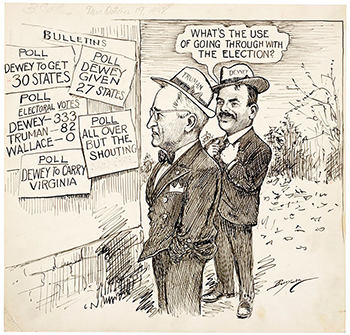 BULLETINS
POLL
DEWEY TO GET
30 STATES
POLL
DEWEY
GIVEN
27 STATES
POLL
ELECTORAL VOTES
DEWEY—333
TRUMAN—82
WALLACE—0
POLL
ALL OVER
BUT THE
SHOUTING
POLL
DEWEY TO CARRY
VIRGINIA
WHAT'S THE USE
OF GOING THROUGH WITH
THE ELECTION?
TRUMAN
DEWEY
BERRYMAN